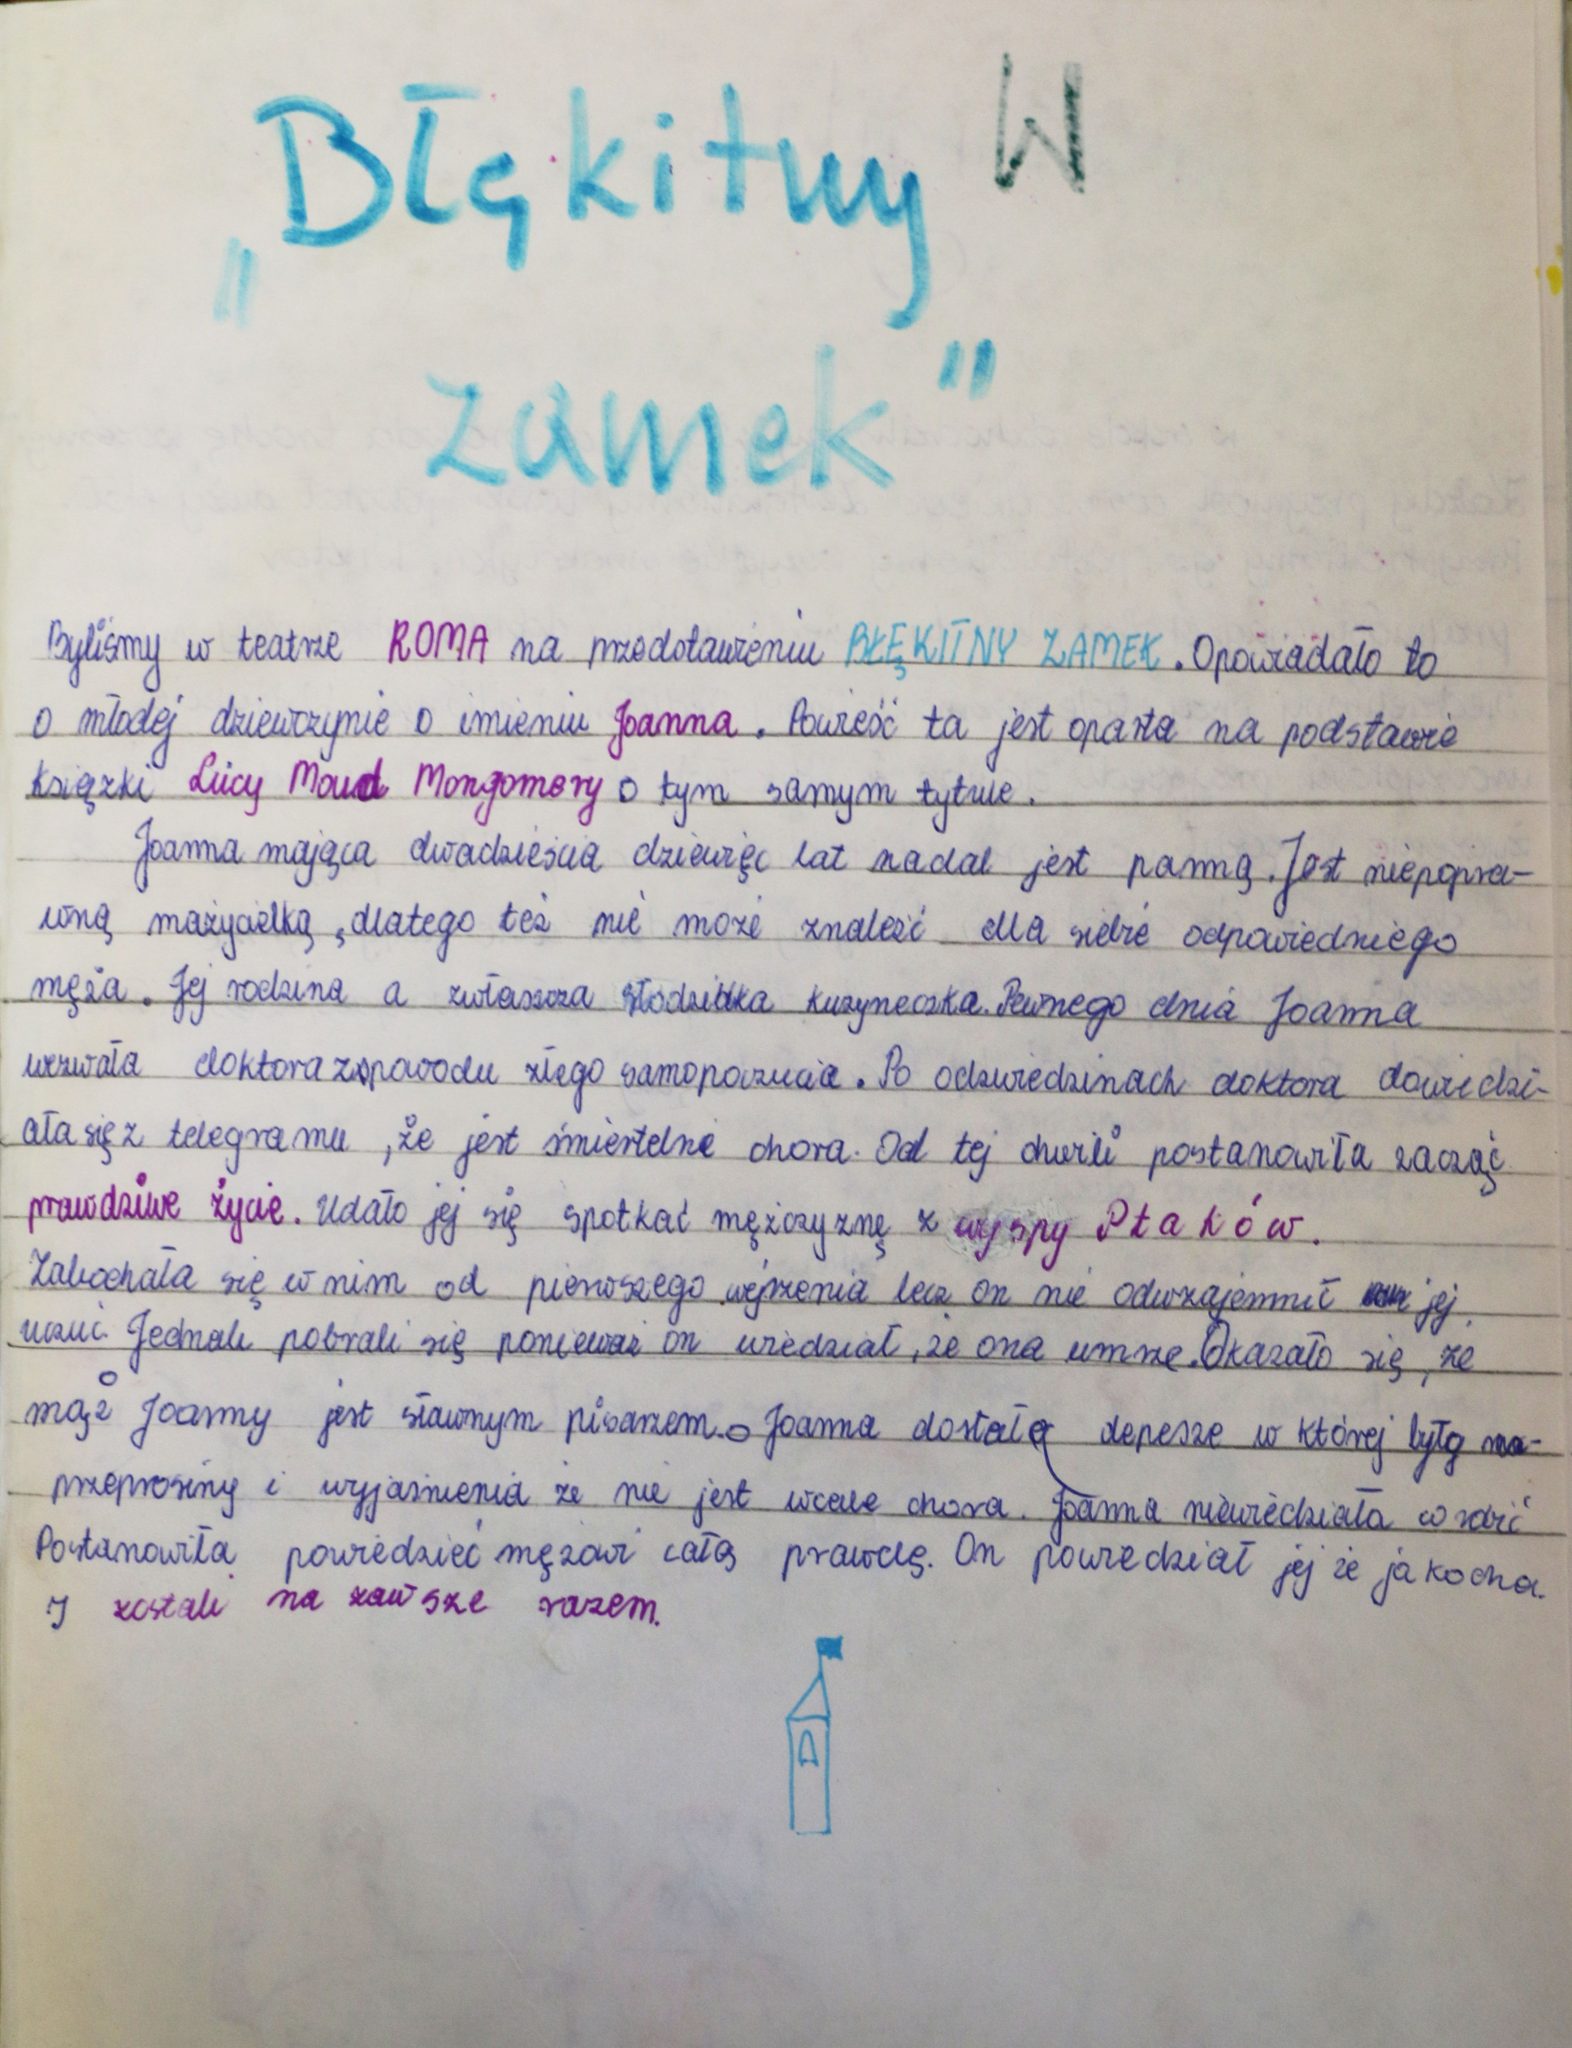 „Błękitny W
zamek"
Byliśmy w teatrze ROMA na przedstawieniu BŁĘKITNY ZAMEK. Opowiadało to
o młodej dziewczynie o imieniu Joanna. Powieść ta jest oparta na podstawie
książki Lucy Moud Mongomery o tym samym tytule.
Joanna mająca dwadzieścia dziewięć lat nadal jest panną. Jest niepopra-
wną mażycielką, dlatego też nie może znaleść dla siebie odpowiedniego
męża. Jej rodzina a zwłaszcza słodziutka kuzyneczka. Pewnego dnia Joanna
wezwała doktora z powodu złego samopoczucia. Po odzwiedzinach doktora dowiedzi-
ała się z telegramu, że jest śmiertelnie chora. Od tej chwili postanowiła zacząć
prawdziwe życie. Udało jej się spotkać mężczyznę z wyspy Ptaków.
Zakochała się w nim od pierwszego wejrzenia lecz on nie odwzajemnił jej
uczuć. Jednak pobrali się ponieważ on wiedział, że ona umrze. Okazało się, że
mąż Joanny jest sławnym pisarzem. Joanna dostała depesze w której było
przeprosiny i wyjaśnienia że nie jest wcale chora. Joanna niewiedziała co robić
Postanowiła powiedzieć mężowi całą prawdę. On powiedział jej że ja kocha.
I zostali na zawsze razem.